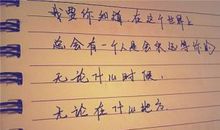 我要你知道,在这个世界上
总会有一个人是会永远等你的
无论什么时候,
无论在什么地方